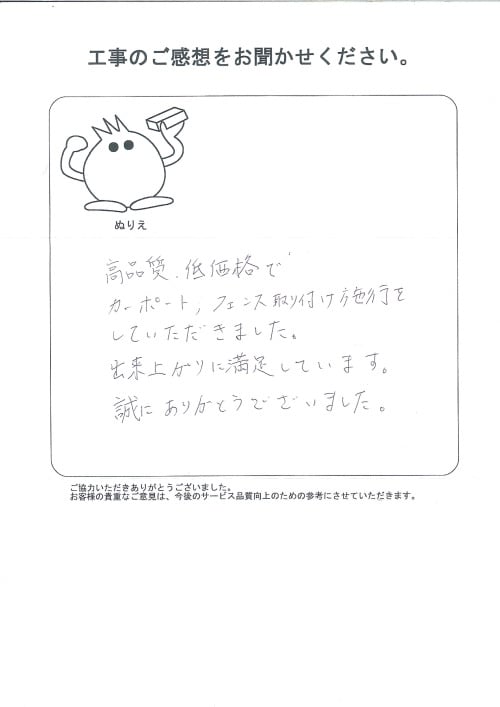 工事のご感想をお聞かせください。
ぬりえ
高品質、低価格で
カーポート,フェンス取り付け施行を
していただきました。
出来上がりに満足しています。
誠にありがとうございました。
ご協力いただきありがとうございました。
お客様の貴重なご意見は、今後のサービス品質向上のための参考にさせていただきます。